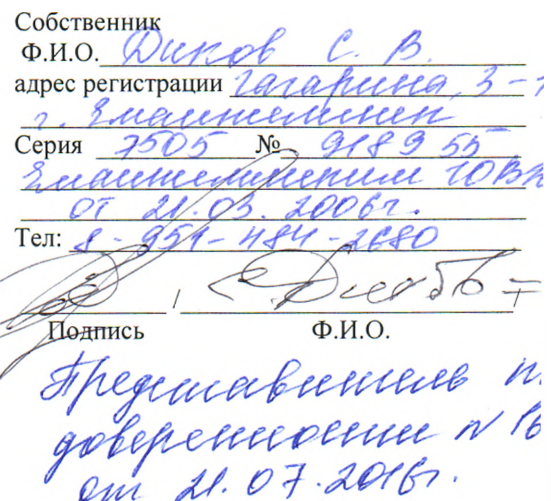 Собственник
Ф.И.О. Диков С. В.
адрес регистрации Гагарина, 3-
г. Еманжелинск
Серия 7505 № 918955
Еманжелинским ГОВД
от 21.03.2006г.
Тел: 8-951-484-2680
/ Диков
Подпись Ф.И.О.
Представитель п.
доверенности N 16
от 21.07.2016г.